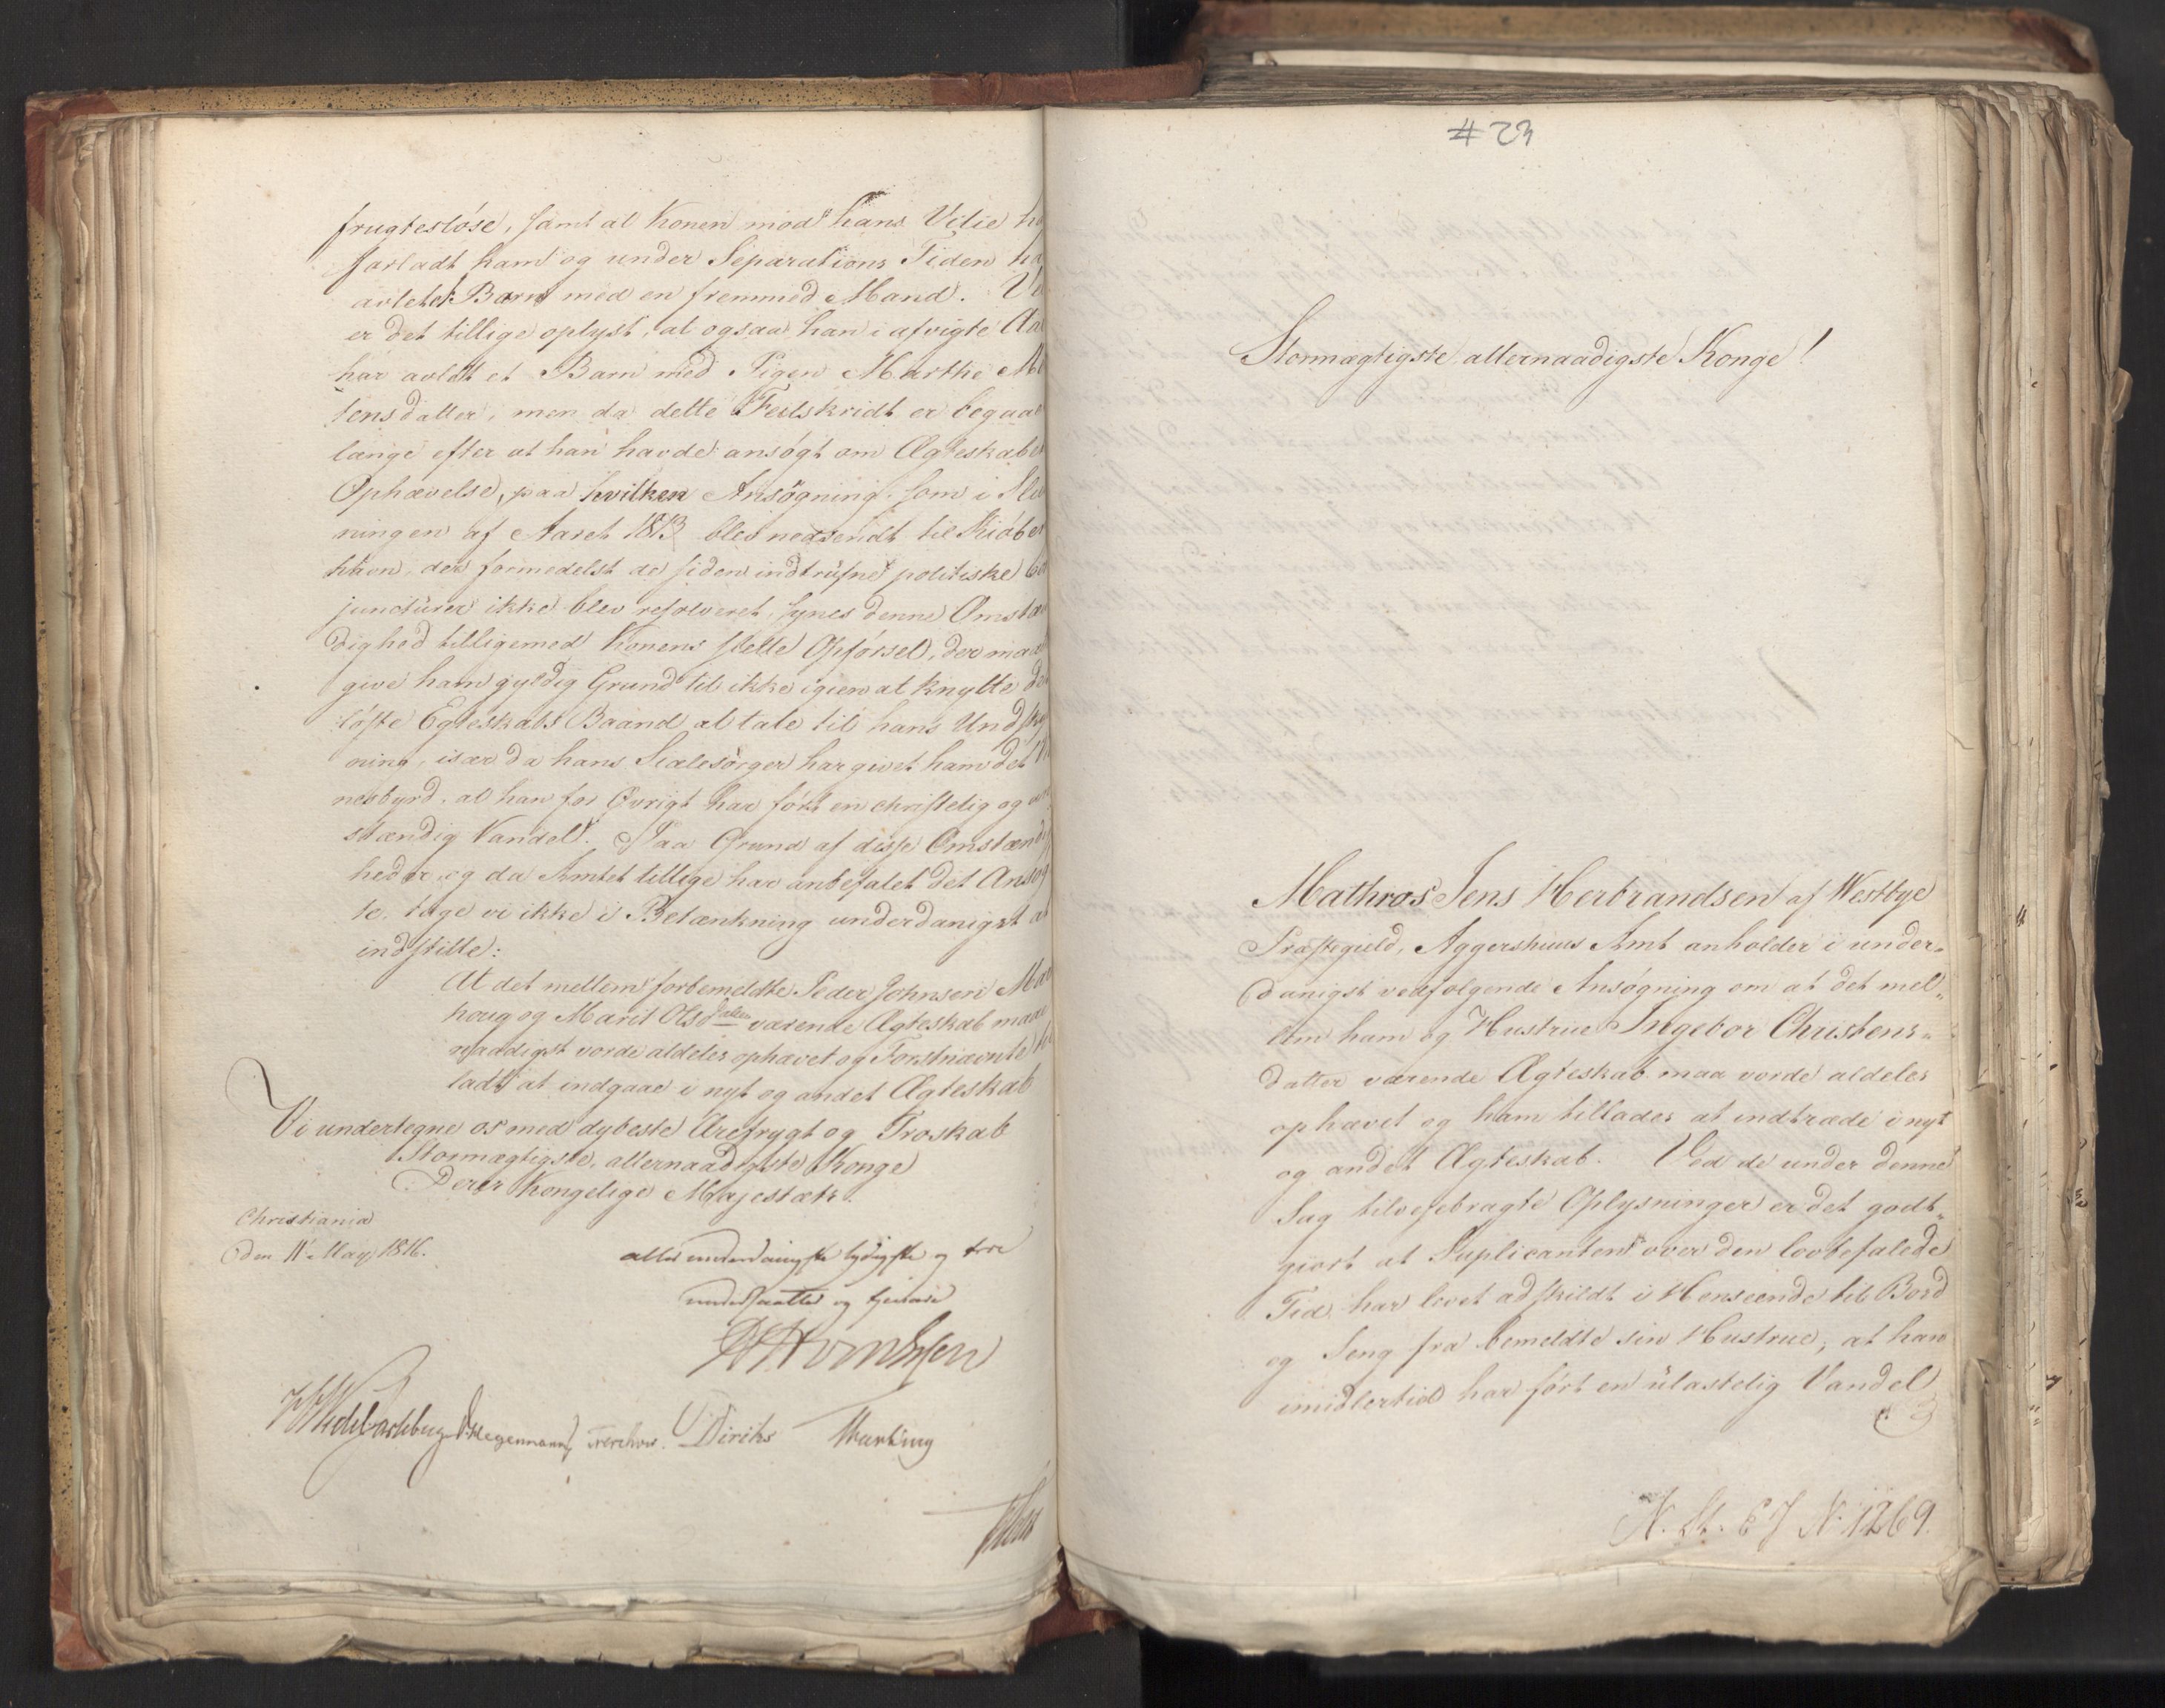 frugtesløse, samt at Konen mod hans Vilie
forladt ham og under Separations Tiden
avlet et Barn med en fremmed Mand.
er det tillige oplyst, at ogsaa han i afvigte
har avlet et Barn med Pigen Marthe
tensdatter, men da dette Feilskridt er
længe efter at han havde ansøgt om
Ophævelse, paa hvilken Ansøgning, som i
ningen af Aaret 1813 blev nedsendt til
havn, der formedelst de siden indtrufne politiske
juncturer ikke blev resolveret, synes denne
dighed tilligemed Konens slette Opførsel, der
give ham gyldig Grund til ikke igien at knytte
løste Egteskabs Baand at tale til hans
ning, især da hans Sielesørger har givet ham det
nesbyrd, at han for Øvrigt har ført en christelig og
stændig Vandel. Paa Grund af disse
heder, og da Amtet tillige har anbefalet det
te, tage vi ikke i Betænkning underdanigst at
indstille:
At det mellem forbemeldte Peder Johnsen
houg og Marit Olsdatter værende Ægteskab maae
naadigst vorde aldeles ophævet og Førstnævnte
ladt at indgaae i nyt og andet Ægteskab
Vi undertegne os med dybeste Ærefrygt og Troskab
Stormægtigste, allernaadigste Konge
Deres Kongelige Majestæts
Christiania
den 11 May 1816.
allerunderdanigste lydigste og troe
undersaatter og tjenere
Diriks
#23
Stormægtigste allernaadigste Konge!
Mathros Jens Herbrandsen af Westbye
Præstegield, Aggershuus Amt anholder i under„
danigst vedfølgende Ansøgning om at det mel„
lem ham og Hustrue Ingebor Christens„
datter værende Ægteskab maa vorde aldeles
ophævet og ham tillades at indtræde i nyt
og andet Ægteskab. Ved de under denne
Sag tilveiebragte Oplysninger er det godt„
giort at Suplicanten over den lovbefalede
Tid har levet adskildt i Henseende til Bord
og Seng fra bemeldte sin Hustrue, at han
imidlertid har ført en ulastelig Vandel
N. 1269.